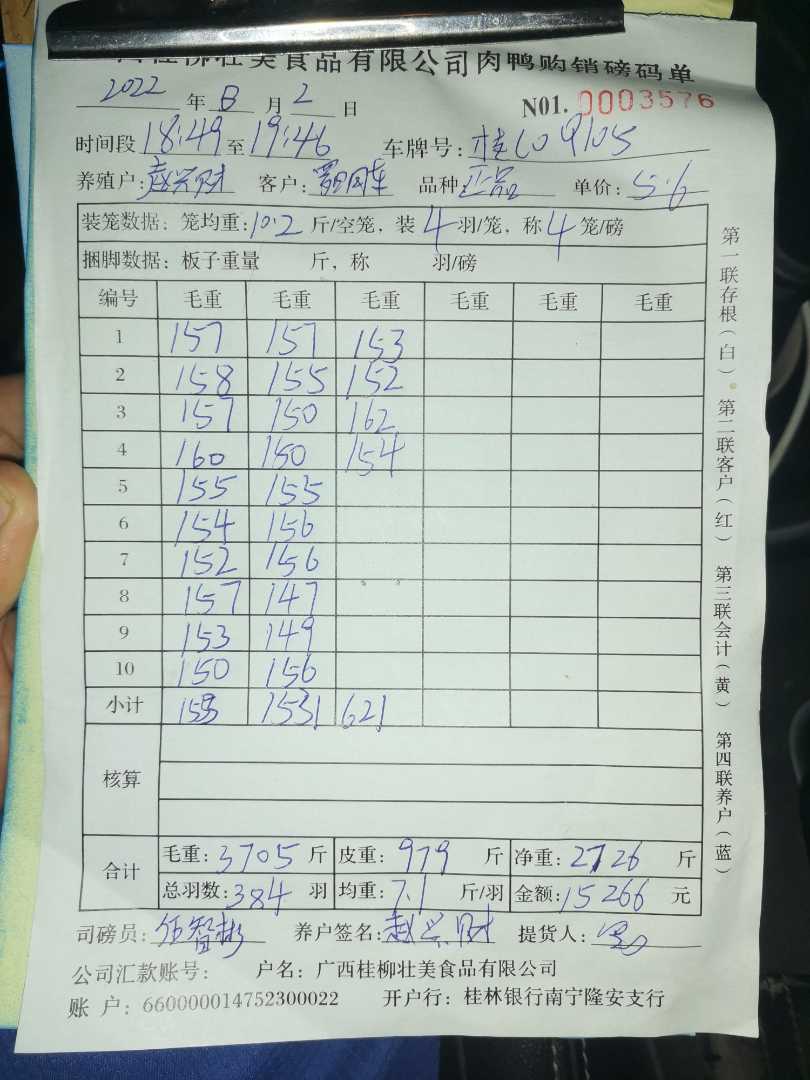 壮美食品有限公司肉鸭购销磅码单
2022 年 8 月 2 日 N01. 0003576
时间段 18:49 至 19:46 车牌号: 桂C09105
养殖户: 赵兴财 客户: 品种 正品 单价: 5.6
装笼数据: 笼均重: 10.2 斤/空笼, 装 4 羽/笼, 称 4 笼/磅
捆脚数据: 板子重量 斤, 称 羽/磅
编号 毛重 毛重 毛重 毛重 毛重 毛重
1 157 157 153
2 158 155 152
3 157 150 162
4 160 150 154
5 155 155
6 154 156
7 152 156
8 157 147
9 153 149
10 150 156
小计 1531 621
核算
合计 毛重: 3705 斤 皮重: 979 斤 净重: 2726 斤
总羽数: 384 羽 均重: 7.1 斤/羽 金额: 15266 元
司磅员: 伍智彬 养户签名: 赵兴财 提货人:
公司汇款账号: 户名: 广西桂柳壮美食品有限公司
账 户: 660000014752300022 开户行: 桂林银行南宁隆安支行
第一联存根(白) 第二联客户(红) 第三联会计(黄) 第四联养户(蓝)